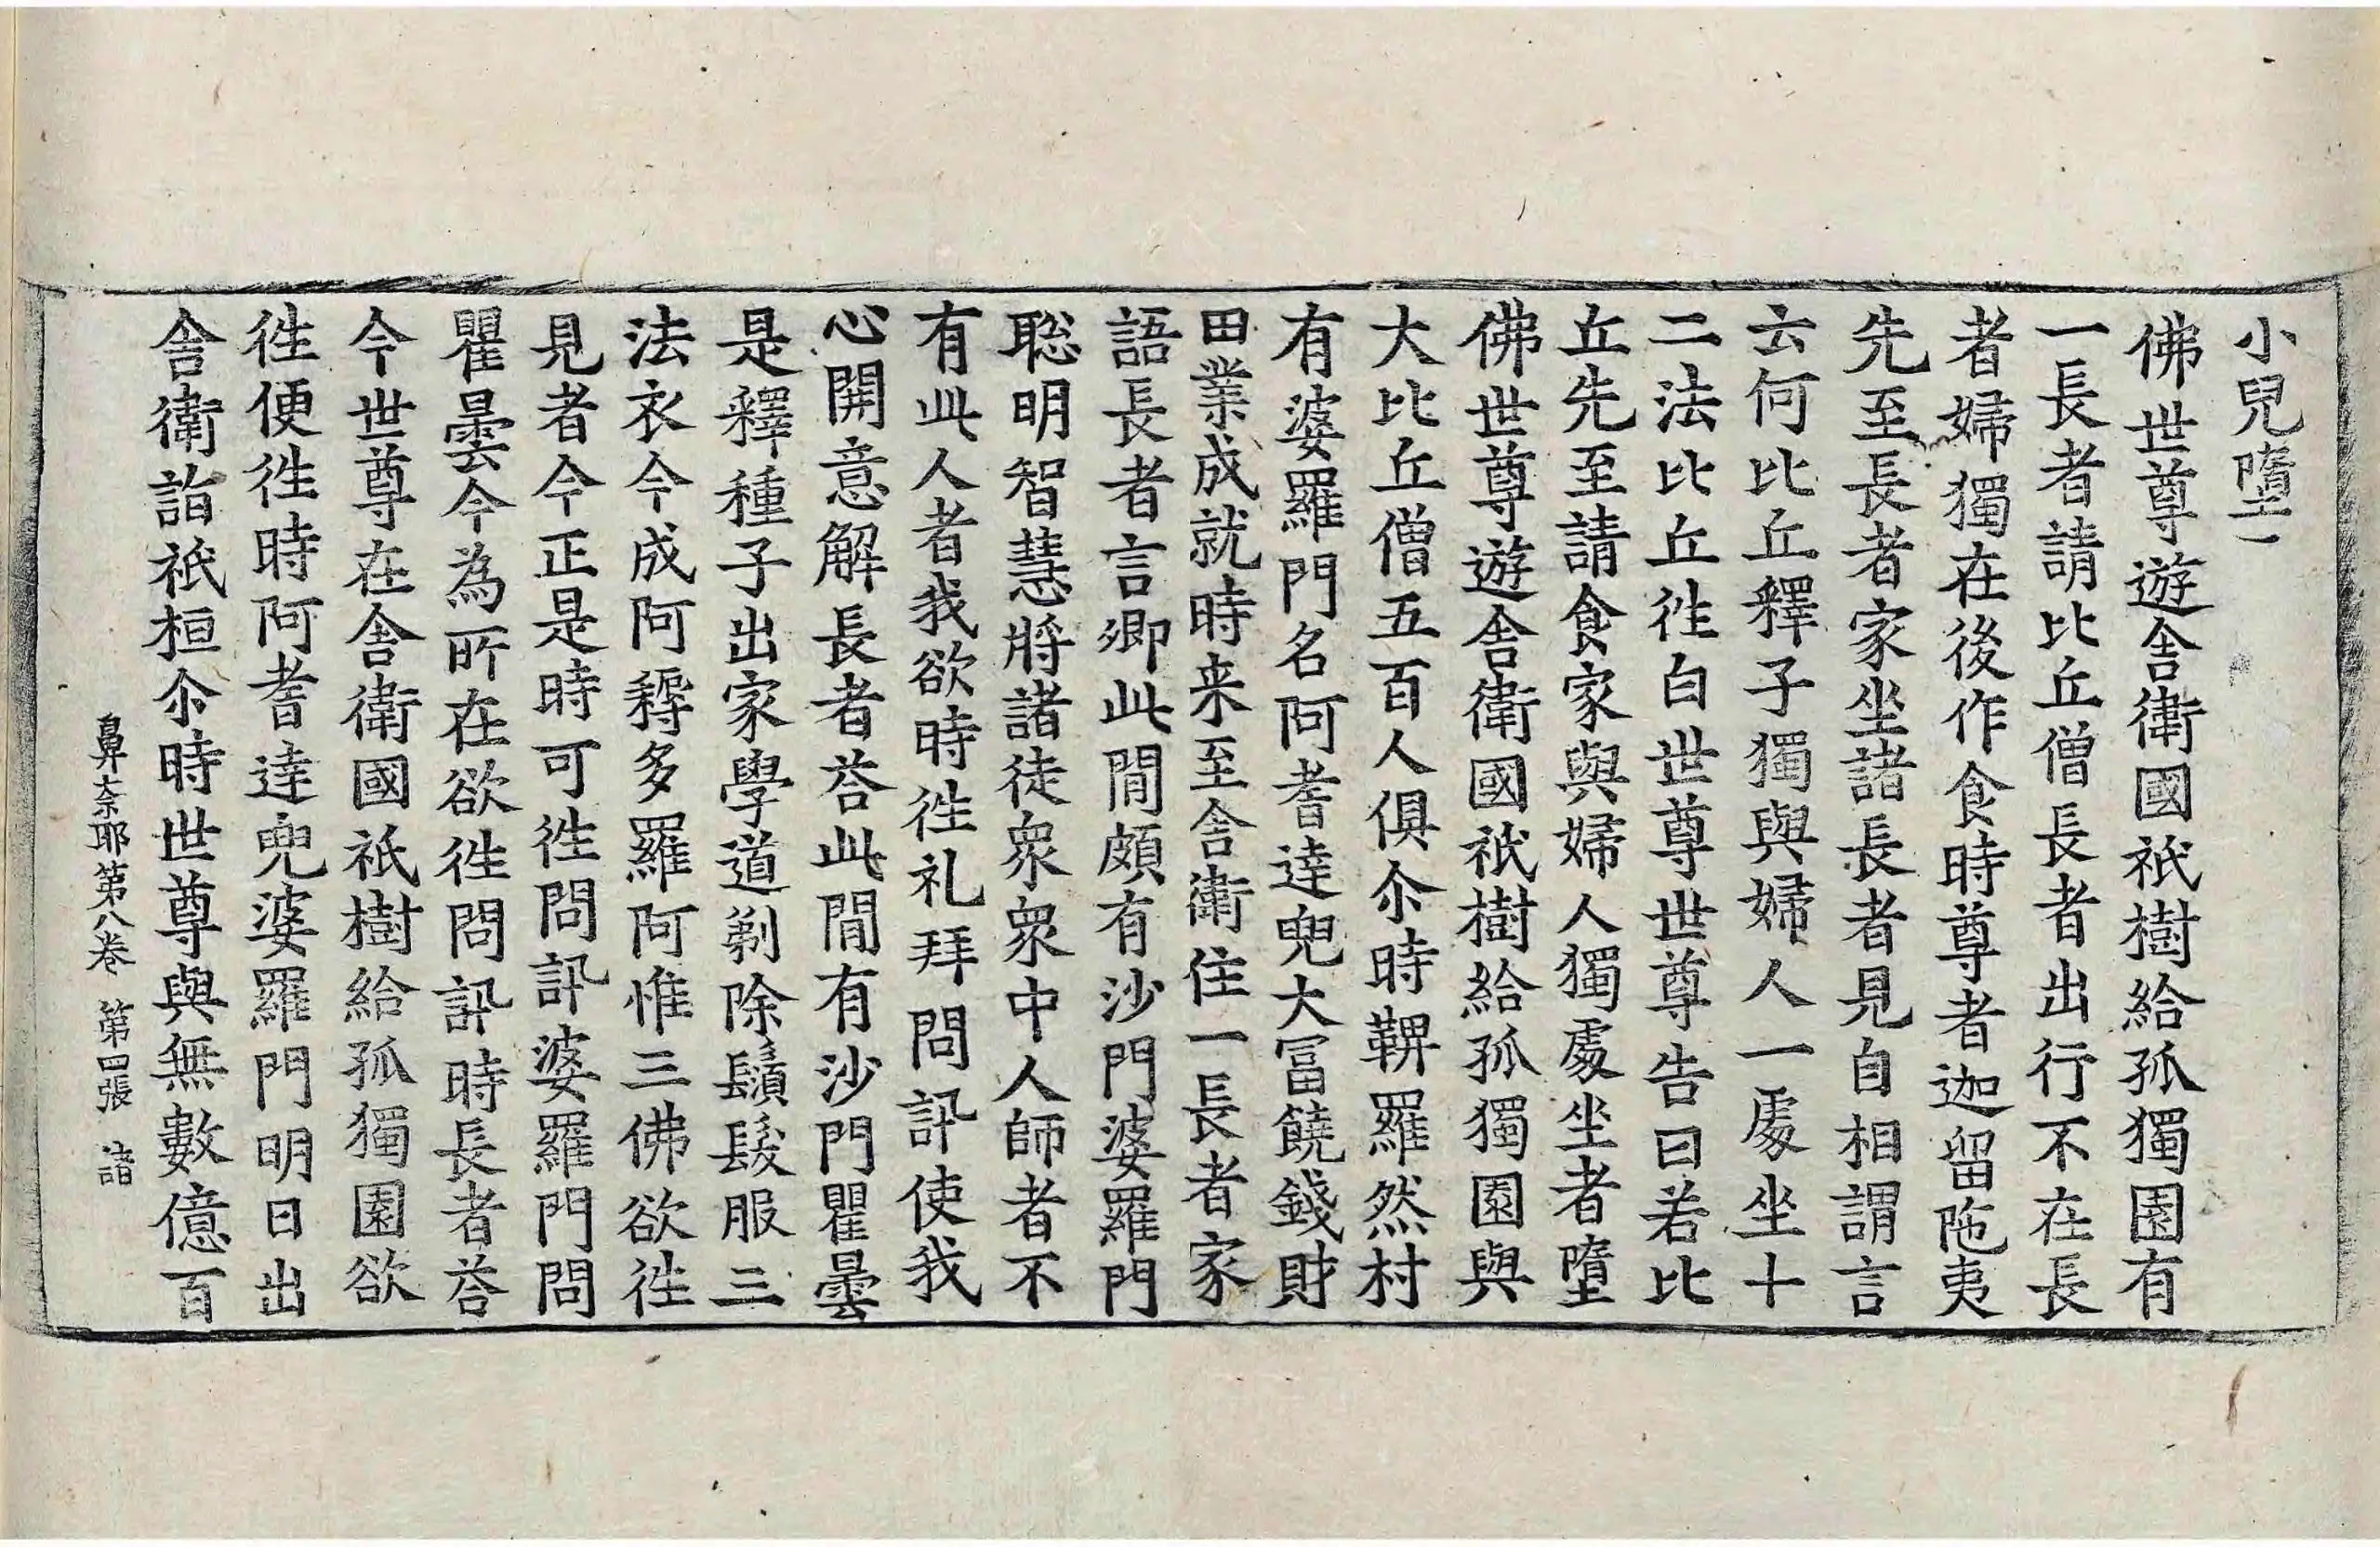 小兒墮一
佛世尊遊舎衛國祇樹給孤獨園有
一長者請比丘僧長者出行不在長
者婦獨在後作食時尊者迦留陁夷
先至長者家坐諸長者見自相謂言
云何比丘釋子獨與婦人一處坐十
二法比丘徃白世尊世尊告曰若比
丘先至請食家與婦人獨處坐者墮
佛世尊遊舎衛國祇樹給孤獨園與
大比丘僧五百人俱尒時鞞羅然村
有婆羅門名阿耆達兜大冨饒錢財
田業成就時来至舎衛住一長者家
語長者言卿此閒頗有沙門婆羅門
聡明智慧將諸徒衆衆中人師者不
有此人者我欲時徃礼拜問訊使我
心開意解長者荅此閒有沙門瞿曇
是釋種子出家學道剃除鬚髮服三
法衣今成阿耨多羅阿惟三佛欲徃
見者今正是時可徃問訊婆羅門問
瞿曇今為所在欲徃問訊時長者荅
今世尊在舎衛國祇樹給孤獨園欲
徃便徃時阿耆達兜婆羅門明日出
舎衛詣祇桓尒時世尊與無數億百
鼻奈耶第八卷 第四張 詣